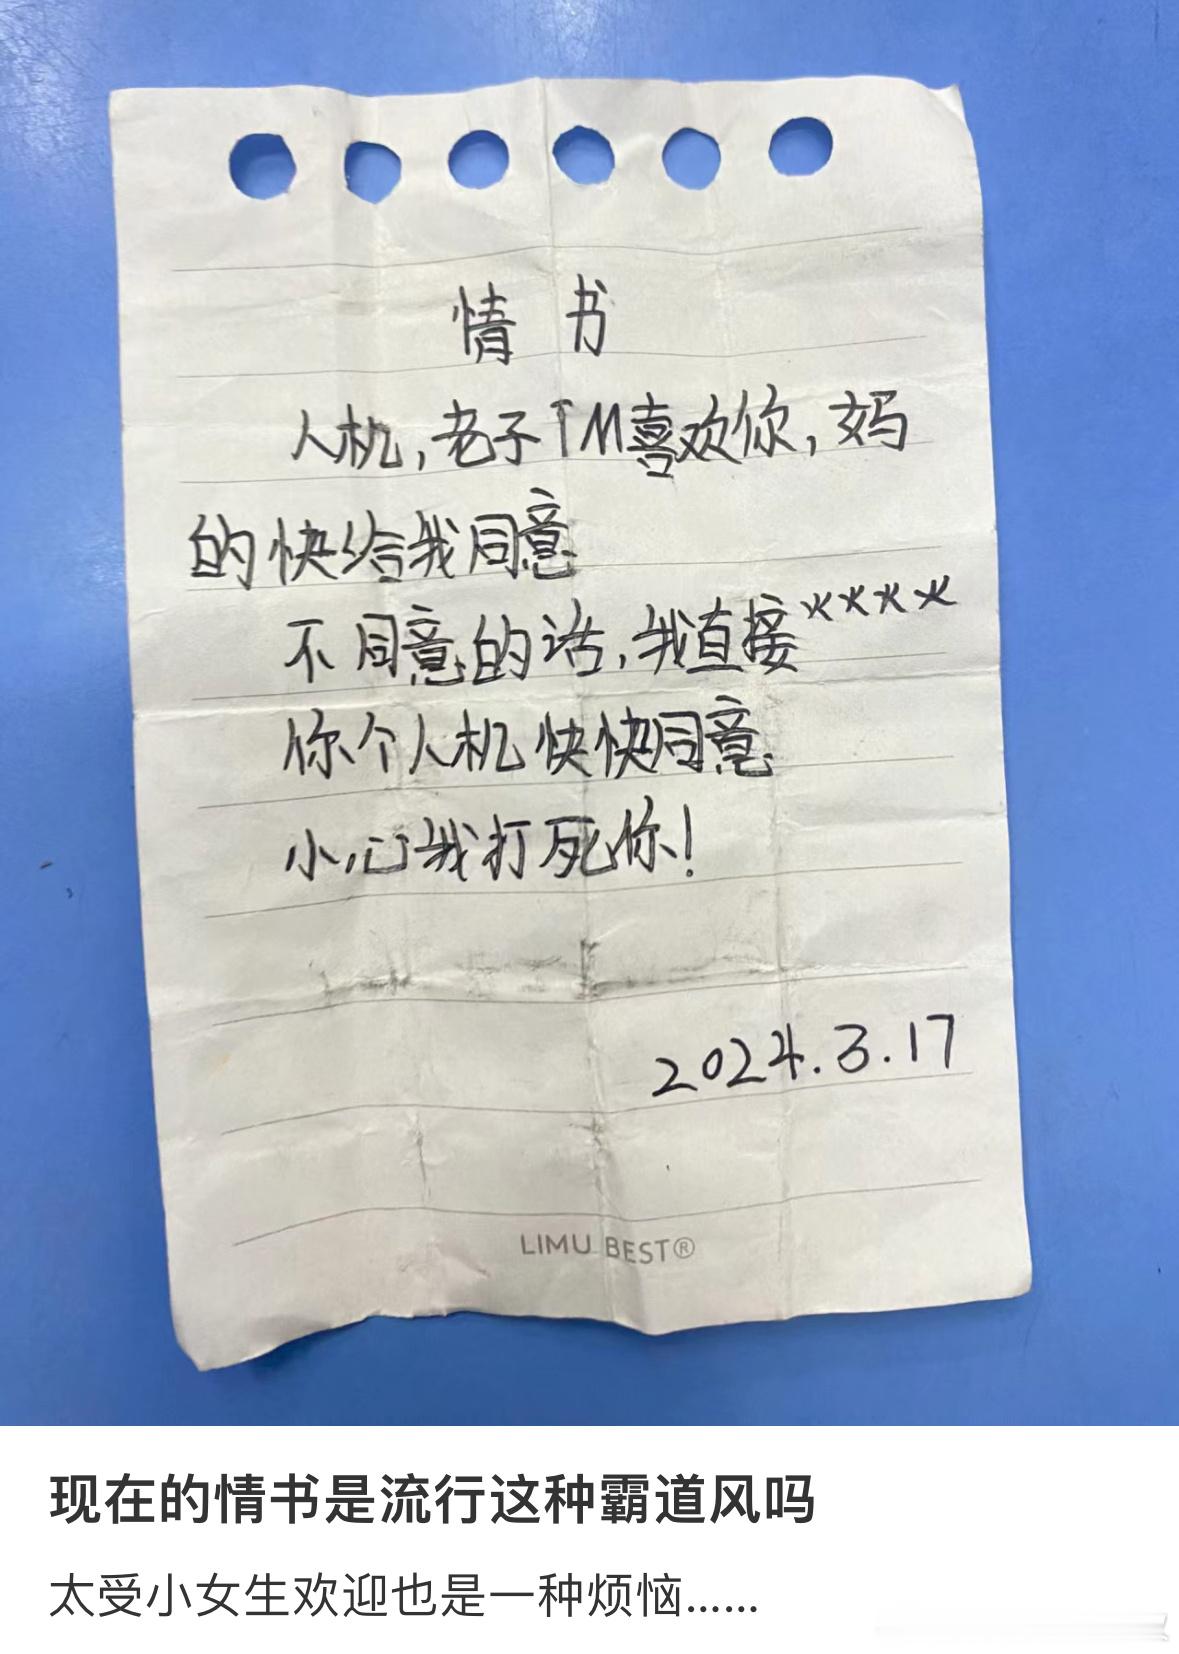 情书
人机,老子TM喜欢你,妈
的快给我同意
不同意的话,我直接××××
你个人机快快同意
小心我打死你!
2024.3.17
LIMU BEST®
现在的情书是流行这种霸道风吗
太受小女生欢迎也是一种烦恼……